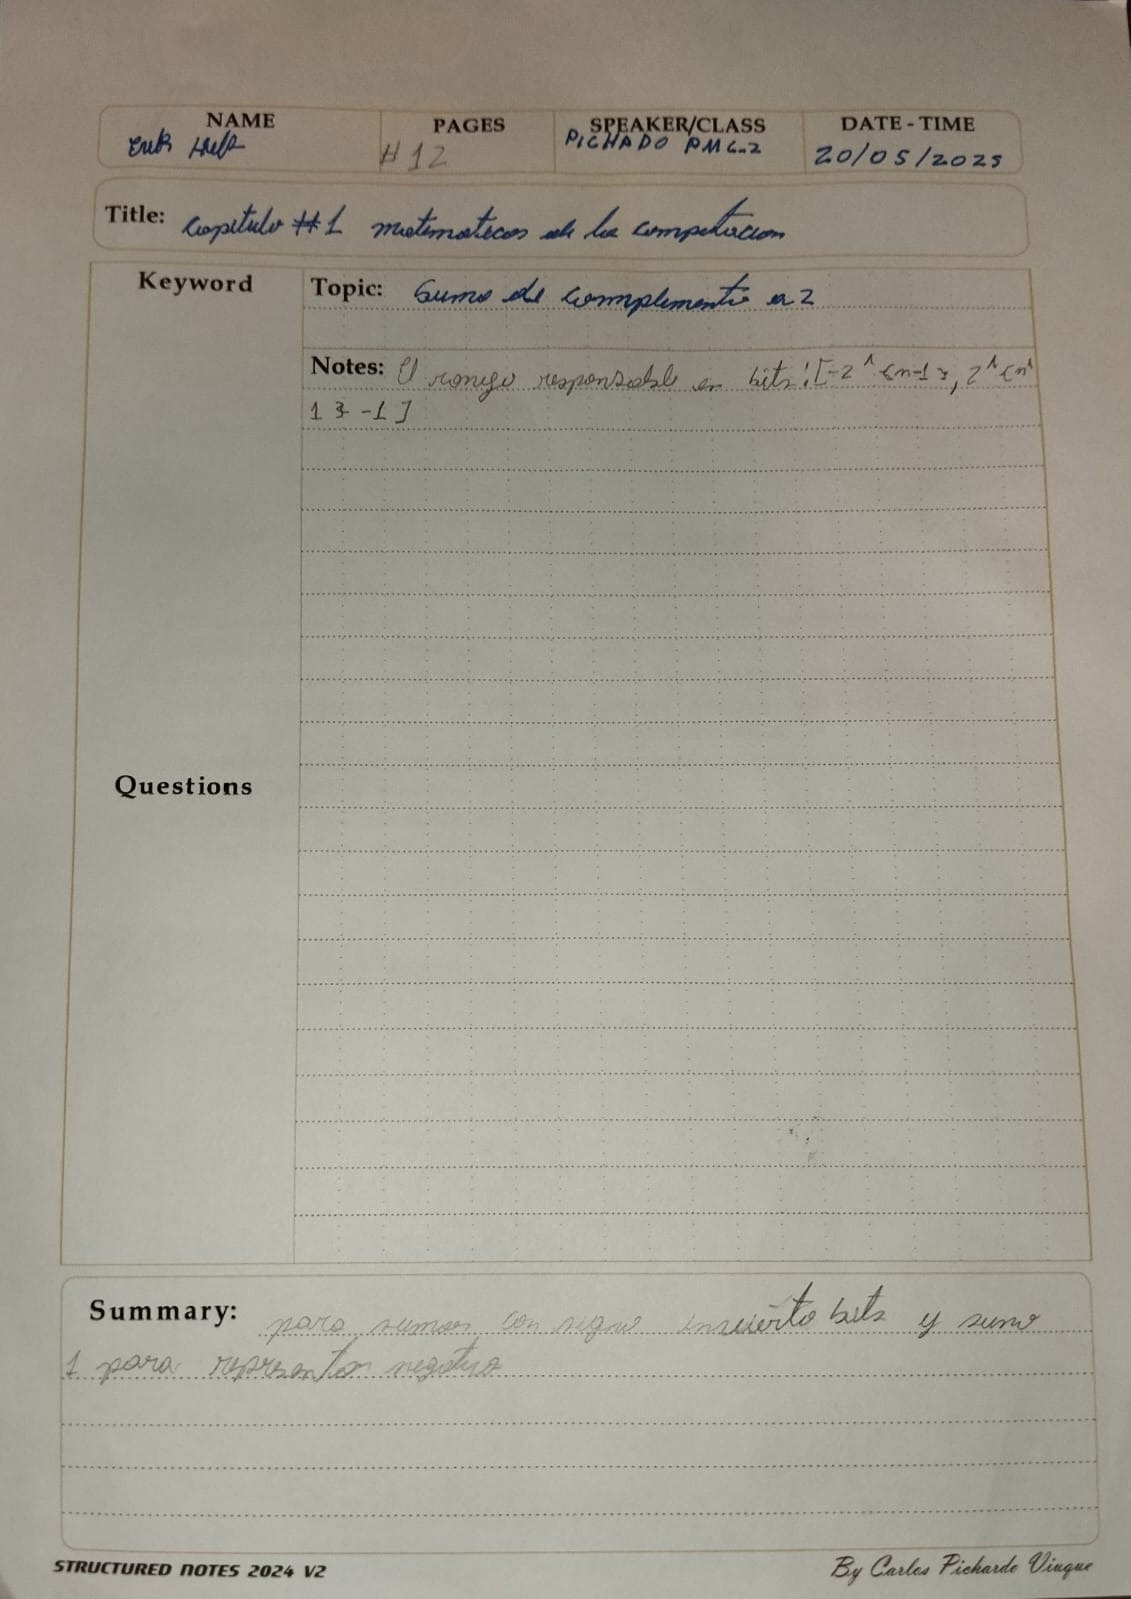 NAME PAGES SPEAKER/CLASS DATE - TIME
#12 PICHADO PM6-2 20/05/2025
Title: Capitulo #1 matematicas de la computacion
Keyword
Topic: Suma de complemento a 2
Notes: El rango en bits: [-2^{n-1}, 2^{n-
1} -1]
Questions
Summary: para sumar con signo invierto bits y sumo
1 para representar negativo
STRUCTURED NOTES 2024 V2
By Carlos Pichardo Viuque